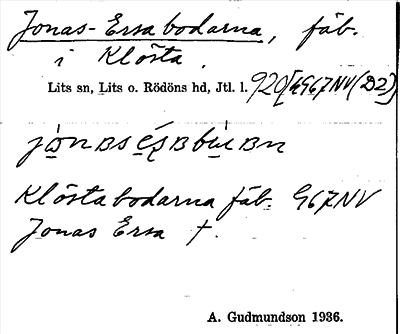 Jonas-Ersabodarna, fäb.
i Klösta.
Lits sn, Lits o. Rödöns hd, Jtl. l. 920 [G967NV(D2)]
Klöstabodarna fäb. G67NV
Jonas Ersa †.
A. Gudmundson 1936.